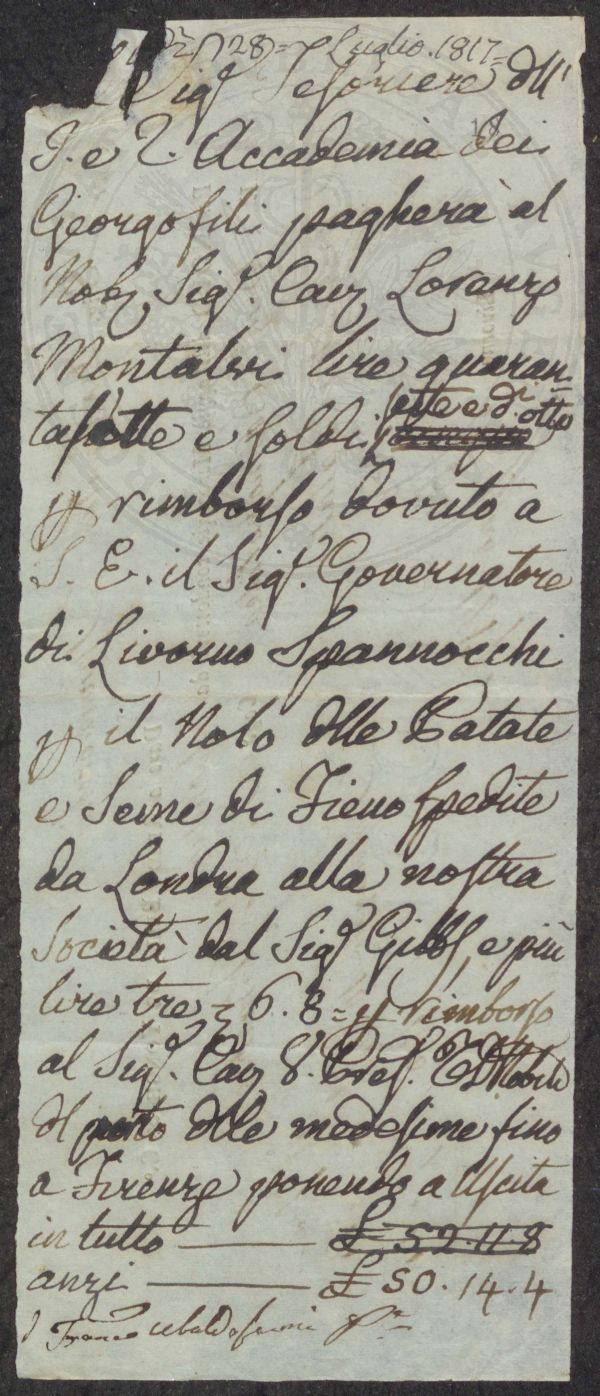 28 = Luglio. 1817 =
Sigr. Tesoriere dll'
I. e R. Accademia dei
Georgofili pagherà al
Nob. Sigr. Cav. Lorenzo
Montalvi lire quaran=
tasette e soldi sette e d. otto
p rimborso dovuto a
S. E. il Sigr. Governatore
di Livorno Spannocchi
p il Nolo dlle Patate
e Seme di Fieno spedite
da Londra alla nostra
Società dal Sigr Gibbs, e più
lire tre = 6. 8 = p rimborso
al Sigr. Cav. V. Pres.
dl porto dlle medesime fino
a Firenze ponendo a Uscita
in tutto —— £ 52.11.8
anzi —— £ 50.14.4